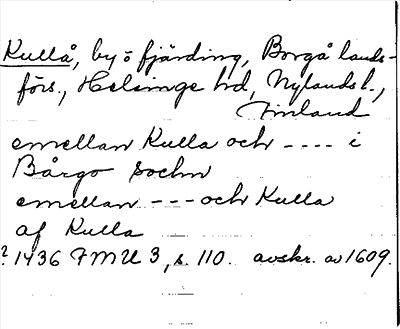 Kullå, by o fjärding, Borgå lands-
förs., Helsinge hd, Nylands l.,
Finland
emellan Kulla och ---- i
Bårgo Sochn
emellan --- och Kulla
af Kulla
? 1436 FMU 3, s. 110. avskr. av 1609.